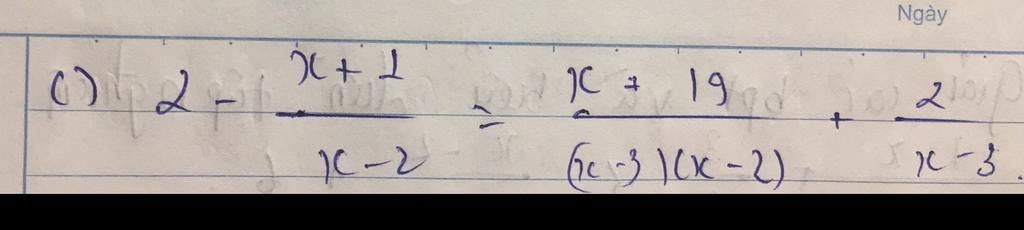 Ngày
c) 2 - \frac{x+1}{x-2} = \frac{x+19}{(x-3)(x-2)} + \frac{2}{x-3}.